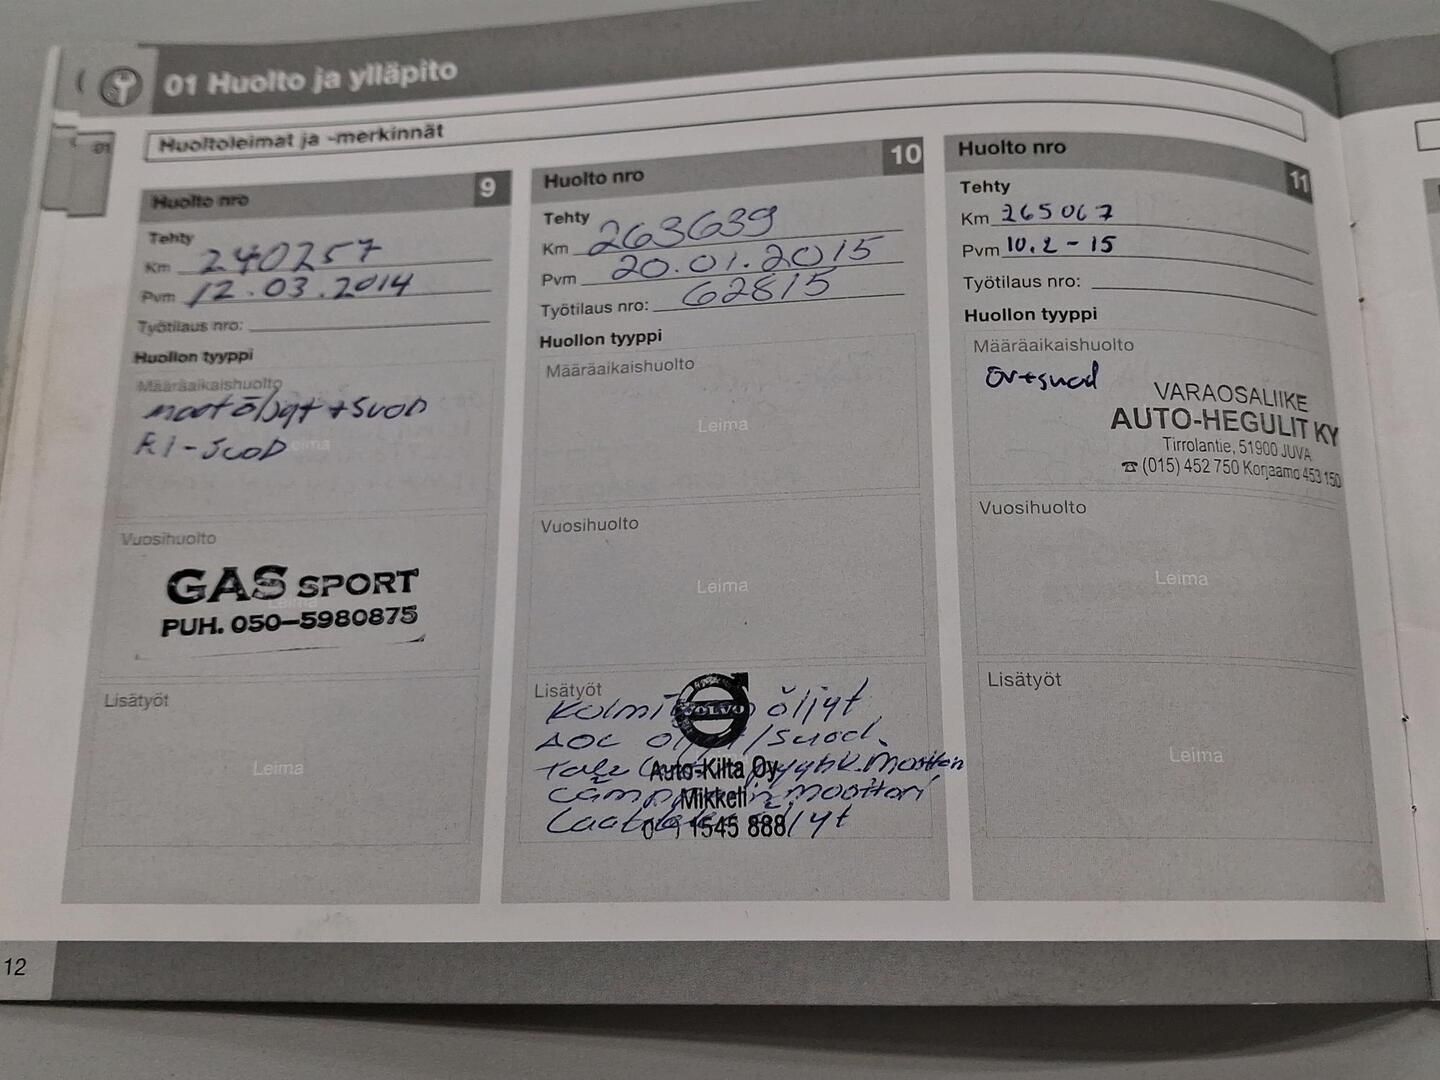 01 Huolto ja ylläpito
01
Huoltoleimat ja -merkinnät
Huolto nro 9
Tehty
Km 240257
Pvm 12.03.2014
Työtilaus nro:
Huollon tyyppi
Määräaikaishuolto
moot öljyt + suod
RI-suod
Leima
Vuosihuolto
GAS SPORT
Leima
PUH. 050-5980875
Lisätyöt
Leima
Huolto nro 10
Tehty
Km 263639
Pvm 20.01.2015
Työtilaus nro: 62815
Huollon tyyppi
Määräaikaishuolto
Leima
Vuosihuolto
Leima
Lisätyöt
öljyt,
VOLVO
AOC /suod.
Auto-Kilta Oy
pyyhk.moottori
Mikkeli
moottori
1545 888
Huolto nro 11
Tehty
Km 265067
Pvm 10.2-15
Työtilaus nro:
Huollon tyyppi
Määräaikaishuolto
öv+suod
VARAOSALIIKE
AUTO-HEGULIT KY
Tirrolantie, 51900 JUVA
☎ (015) 452 750 Korjaamo 453 150
Vuosihuolto
Leima
Lisätyöt
Leima
12